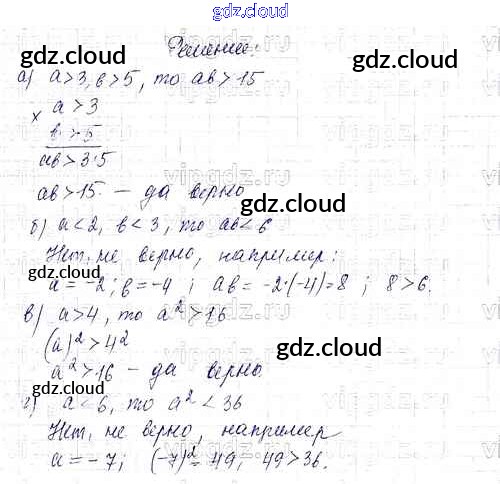 gdz.cloud
Решение:
gdz.cloud gdz.cloud
а) a>3, в>5, то aв>15
× a>3
в>5
aв>3·5
gdz.cloud
aв>15 – да верно
б) a<2, в<3, то aв<6
Нет, не верно, например:
gdz.cloud gdz.cloud
a=-2; в=-4; aв=-2·(-4)=8; 8>6.
в) a>4, то a²>16
(a)²>4²
gdz.cloud
a²>16 – да верно.
gdz.cloud
г) a<6, то a²<36
Нет, не верно, например
a=-7; (-7)²=49, 49>36.
gdz.cloud